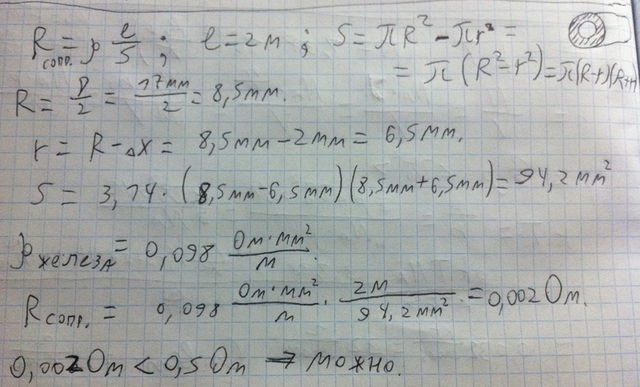 Rсопр. = ρ l/S ; l = 2м ; S = πR² - πr² =
= π(R² - r²) = π(R-r)(R+r)
R = D/2 = 17мм/2 = 8,5мм.
r = R - Δx = 8,5мм - 2мм = 6,5мм.
S = 3,14 · (8,5мм - 6,5мм)(8,5мм + 6,5мм) = 94,2мм²
ρжелеза = 0,098 Ом·мм²/м.
Rсопр. = 0,098 Ом·мм²/м · 2м/94,2мм² = 0,002 Ом.
0,002 Ом < 0,5 Ом ⇒ можно.